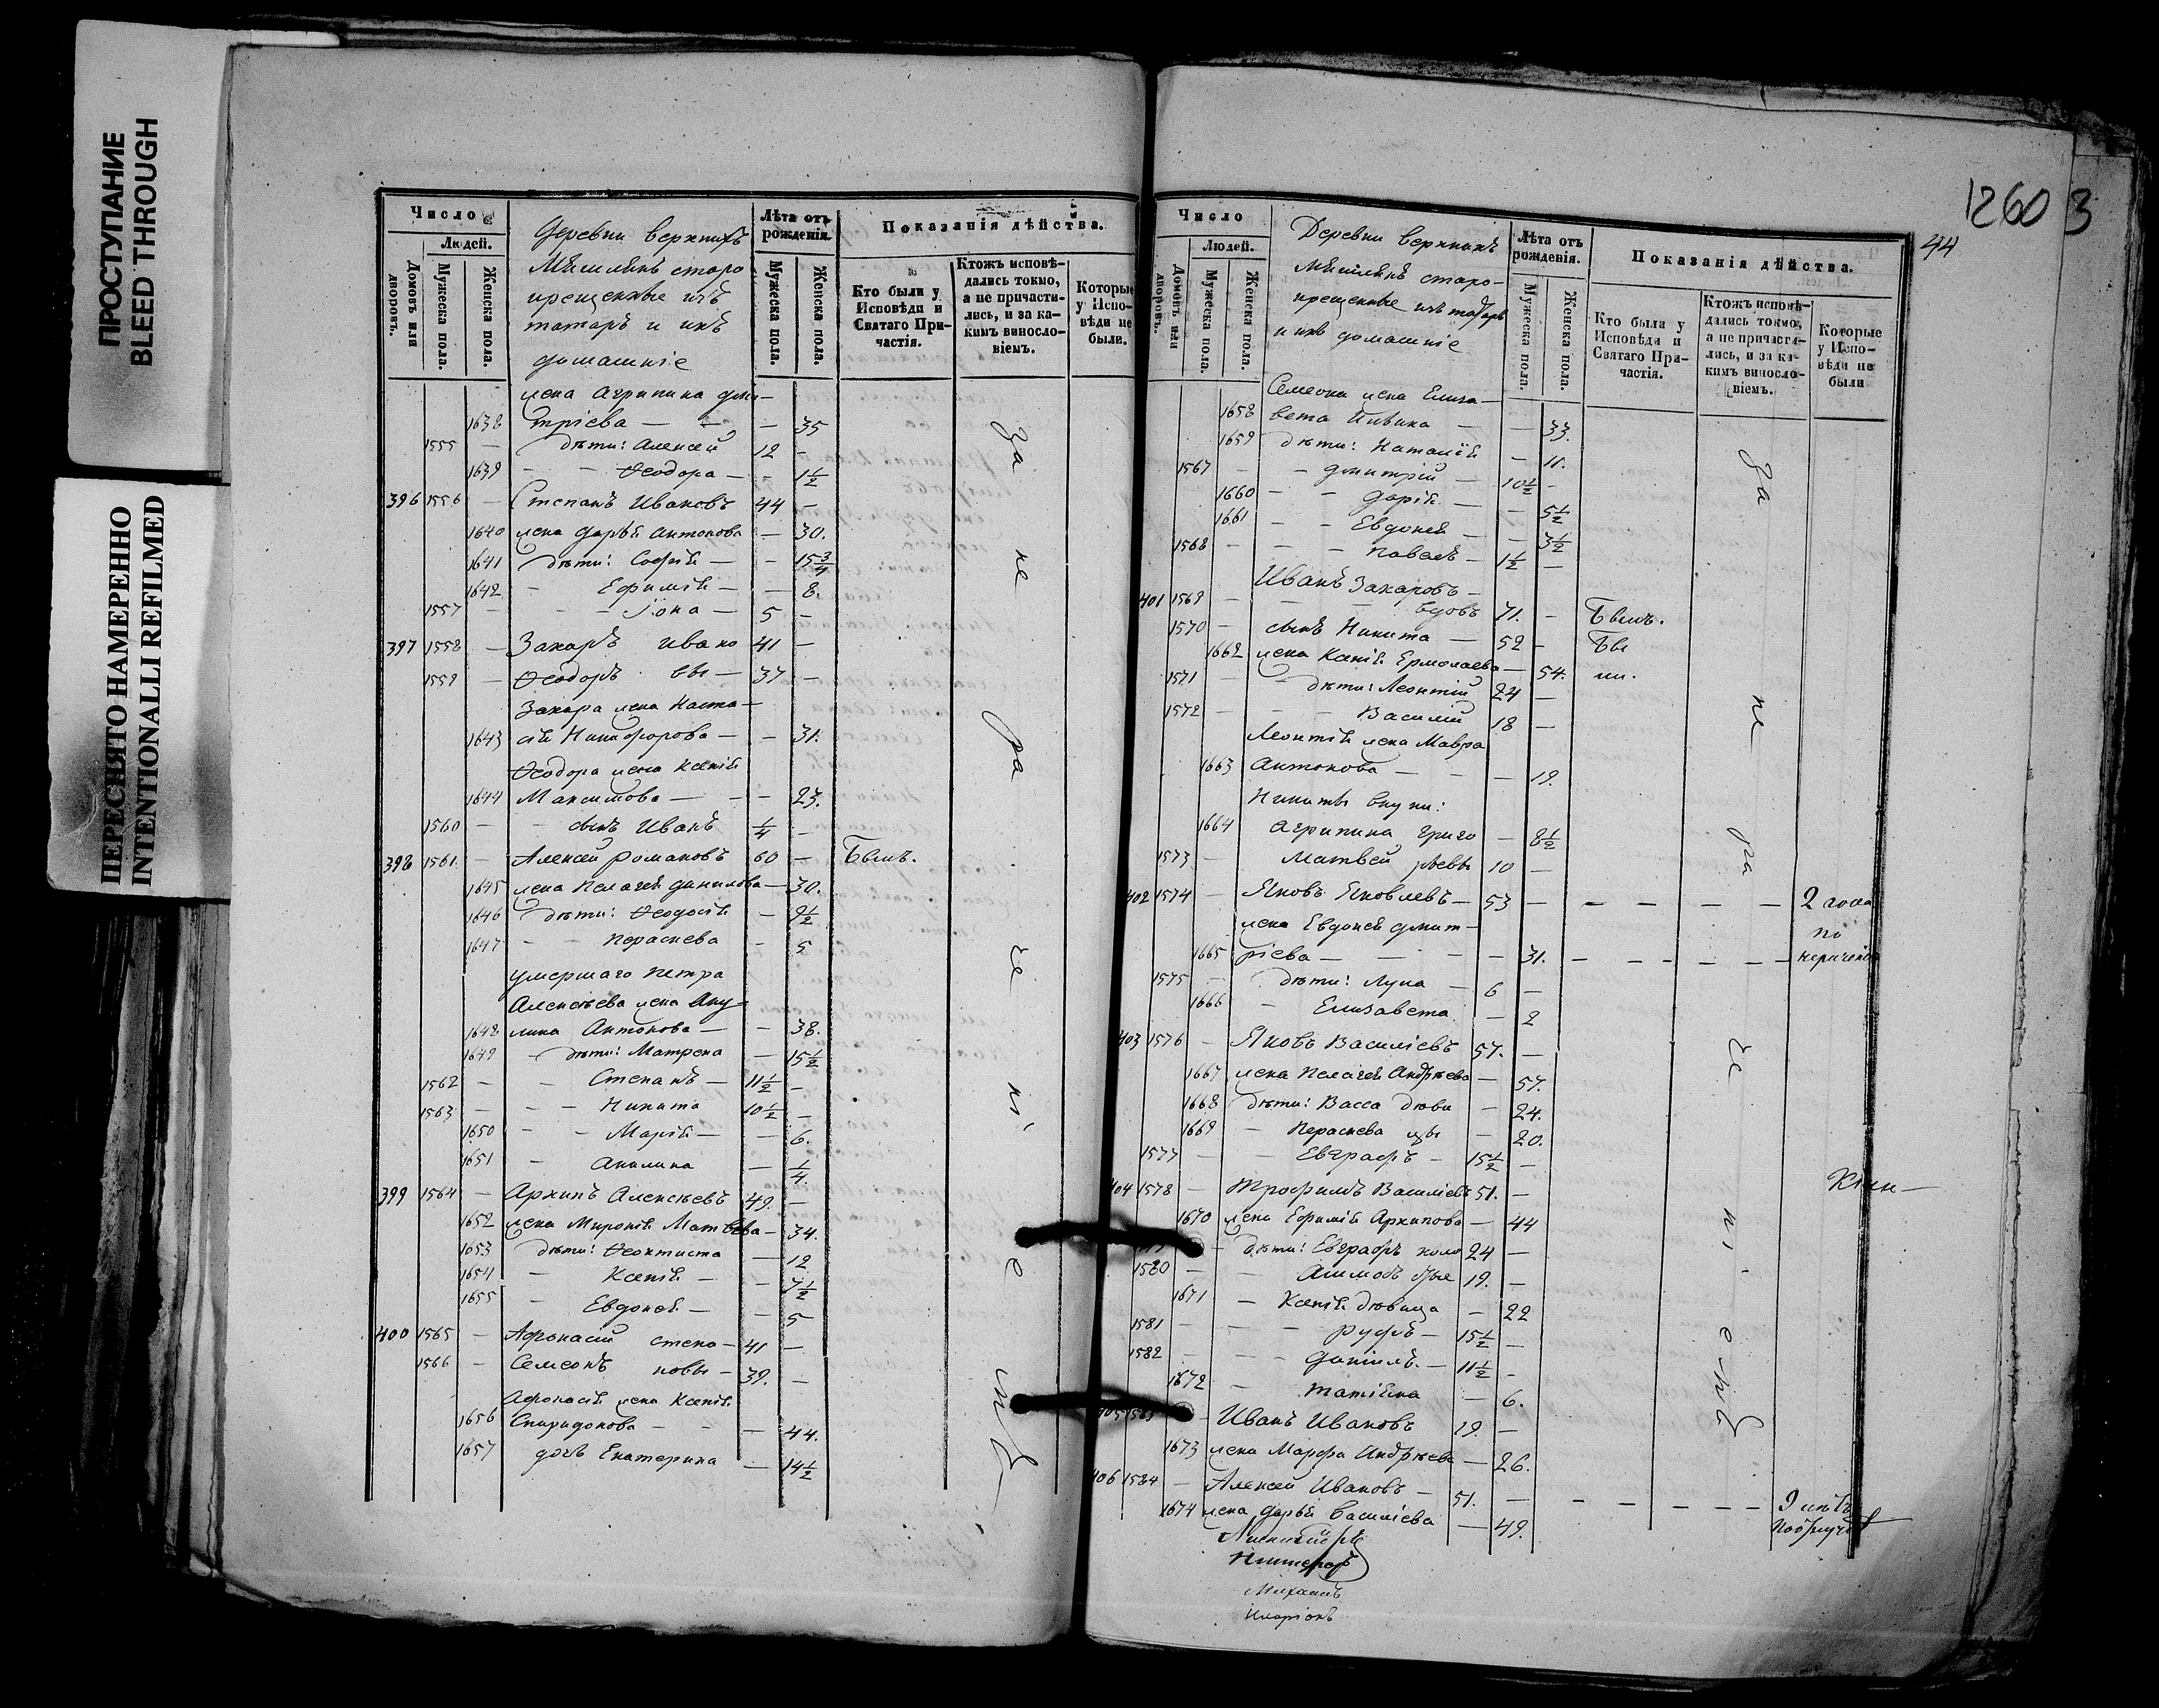 ПРОСТУПАНИЕ
BLEED THROUGH
ПЕРЕСНЯТО НАМЕРЕННО
INTENTIONALLI REFILMED
Число
Людей.
Домовъ или дворовъ.
Мужеска пола.
Женска пола.
Деревни верхнихъ
Мешлянъ старо
крещенные изъ
татаръ и ихъ
домашніе
Лѣта отъ рожденія.
Мужеска пола.
Женска пола.
Показанія дѣйства.
Кто были у Исповѣди и Святаго Причастія.
Ктожъ исповѣдались токмо, а не причастились, и за какимъ винословіемъ.
Которые у Исповѣди не были.
жена Агрипина Дми-
1638 тріева — — 35
1555 — дѣти: Алексей 12 —
1639 — — Ѳеодора — — 1½
396 1556 — Степанъ Ивановъ 44 —
1640 жена Дарья Антонова — 30.
1641 дѣти: Софія — — 15¾
1642 — Ефимія — — 8.
1557 — — Іона — 5 —
397 1558 — Захаръ Ивано 41 —
1559 — Ѳеодоръ вы — 37 —
Захара жена Наста-
1643 сія Никифорова — — 31.
Ѳеодора жена Ксенія
1644 Максимова — — — 23.
1560 — — сынъ Иванъ ¼ —
398 1561. — Алексей Романовъ 60 — Былъ.
1645 жена Пелагея Данилова — 30.
1646 дѣти: Ѳеодосія — 9½
1647 — — Параскева — 5
умершаго Петра
Алексѣева жена Аку-
1648 лина Антонова — — 38.
1649 — дѣти: Матрена — 15½
1562 — — Степанъ — 11½ —
1563 — — — Никита 10½ —
1650 — — Марія — — 6.
1651 — Акилина — ¼
399 1564 — Архипъ Алексѣевъ 49. —
1652 жена Миронія Матвѣева — 34.
1653 дѣти: Ѳеоктиста — 12
1654 — Ксенія — — 7½
1655 — Евдокея — — 5
400 1565 — Афонасій степа — 41 —
1566 — Семеонъ новы — 39. —
Афонасія жена Ксенія
1656 Спиридонова — — — 44.
1657 дочь Екатерина — 14½
за не ра че ні е мъ
12603
44
Число
Людей.
Домовъ или дворовъ.
Мужеска пола.
Женска пола.
Деревни верхнихъ
Мешлянъ старо-
крещенные изъ татаръ
и ихъ домашніе
Лѣта отъ рожденія.
Мужеска пола.
Женска пола.
Показанія дѣйства.
Кто были у Исповѣди и Святаго Причастія.
Ктожъ исповѣдались токмо, а не причастились, и за какимъ винословіемъ.
Которые у Исповѣди не были
Семеона жена Елиза-
1658 вета — — 33.
1659 дѣти: Наталія — 11.
1567 — — Дмитрій — 10½ —
1660 — — Дарія — — 5½
1661 — — Евдокея — — 3½
1568 — — — Павелъ — 1½ —
Иванъ Захаровъ —
401 1569 — — — вдовъ 71. — Былъ.
1570 — сынъ Никита — 52 — Бы
1662 жена Ксенія Ермолаева — 54. ли.
1571 — — дѣти: Леонтій 24 —
1572 — — — Василій 18 —
Леонтія жена Мавра
1663 Антонова — — — 19.
Никиты внуки:
1664 Агрипина Григо — 8½
1573 — Матвей рьевы 10 —
402 1574 — Яковъ Яковлевъ — 53 — — — — — 2 года
жена Евдокея Дмит- по
1665 ріева — — — — 31. — — — — — нераченію
1575 — дѣти: Лука — 6 —
1666 — Елизавета — 2
403 1576 — Яковъ Василіевъ 57. —
1667 жена Пелагея Андрѣева — 57.
1668 дѣти: Васса дѣви — 24.
1669 — Параскева цы — 20.
1577 — — Евграфъ — 15½ —
404 1578 — Трофимъ Василіевъ 51. —
1670 жена Ефимія Архипова — 44
— дѣти: Евграфъ холо 24 —
1580 — — стые 19. —
1671 — Ксенія дѣвица — 22
1581 — — — Руфъ — 15½ —
1582 — — — Даніилъ — 11½ —
1672 — Татіяна — 6.
405 1583 — Иванъ Ивановъ 19. —
1673 жена Марфа Андрѣева — 26.
406 1584 — Алексей Ивановъ — 51. — — — — — 9 лѣтъ
1674 жена Дарья Василіева — 49.
Михаилъ
Иларіонъ
за не ра че ні е мъ